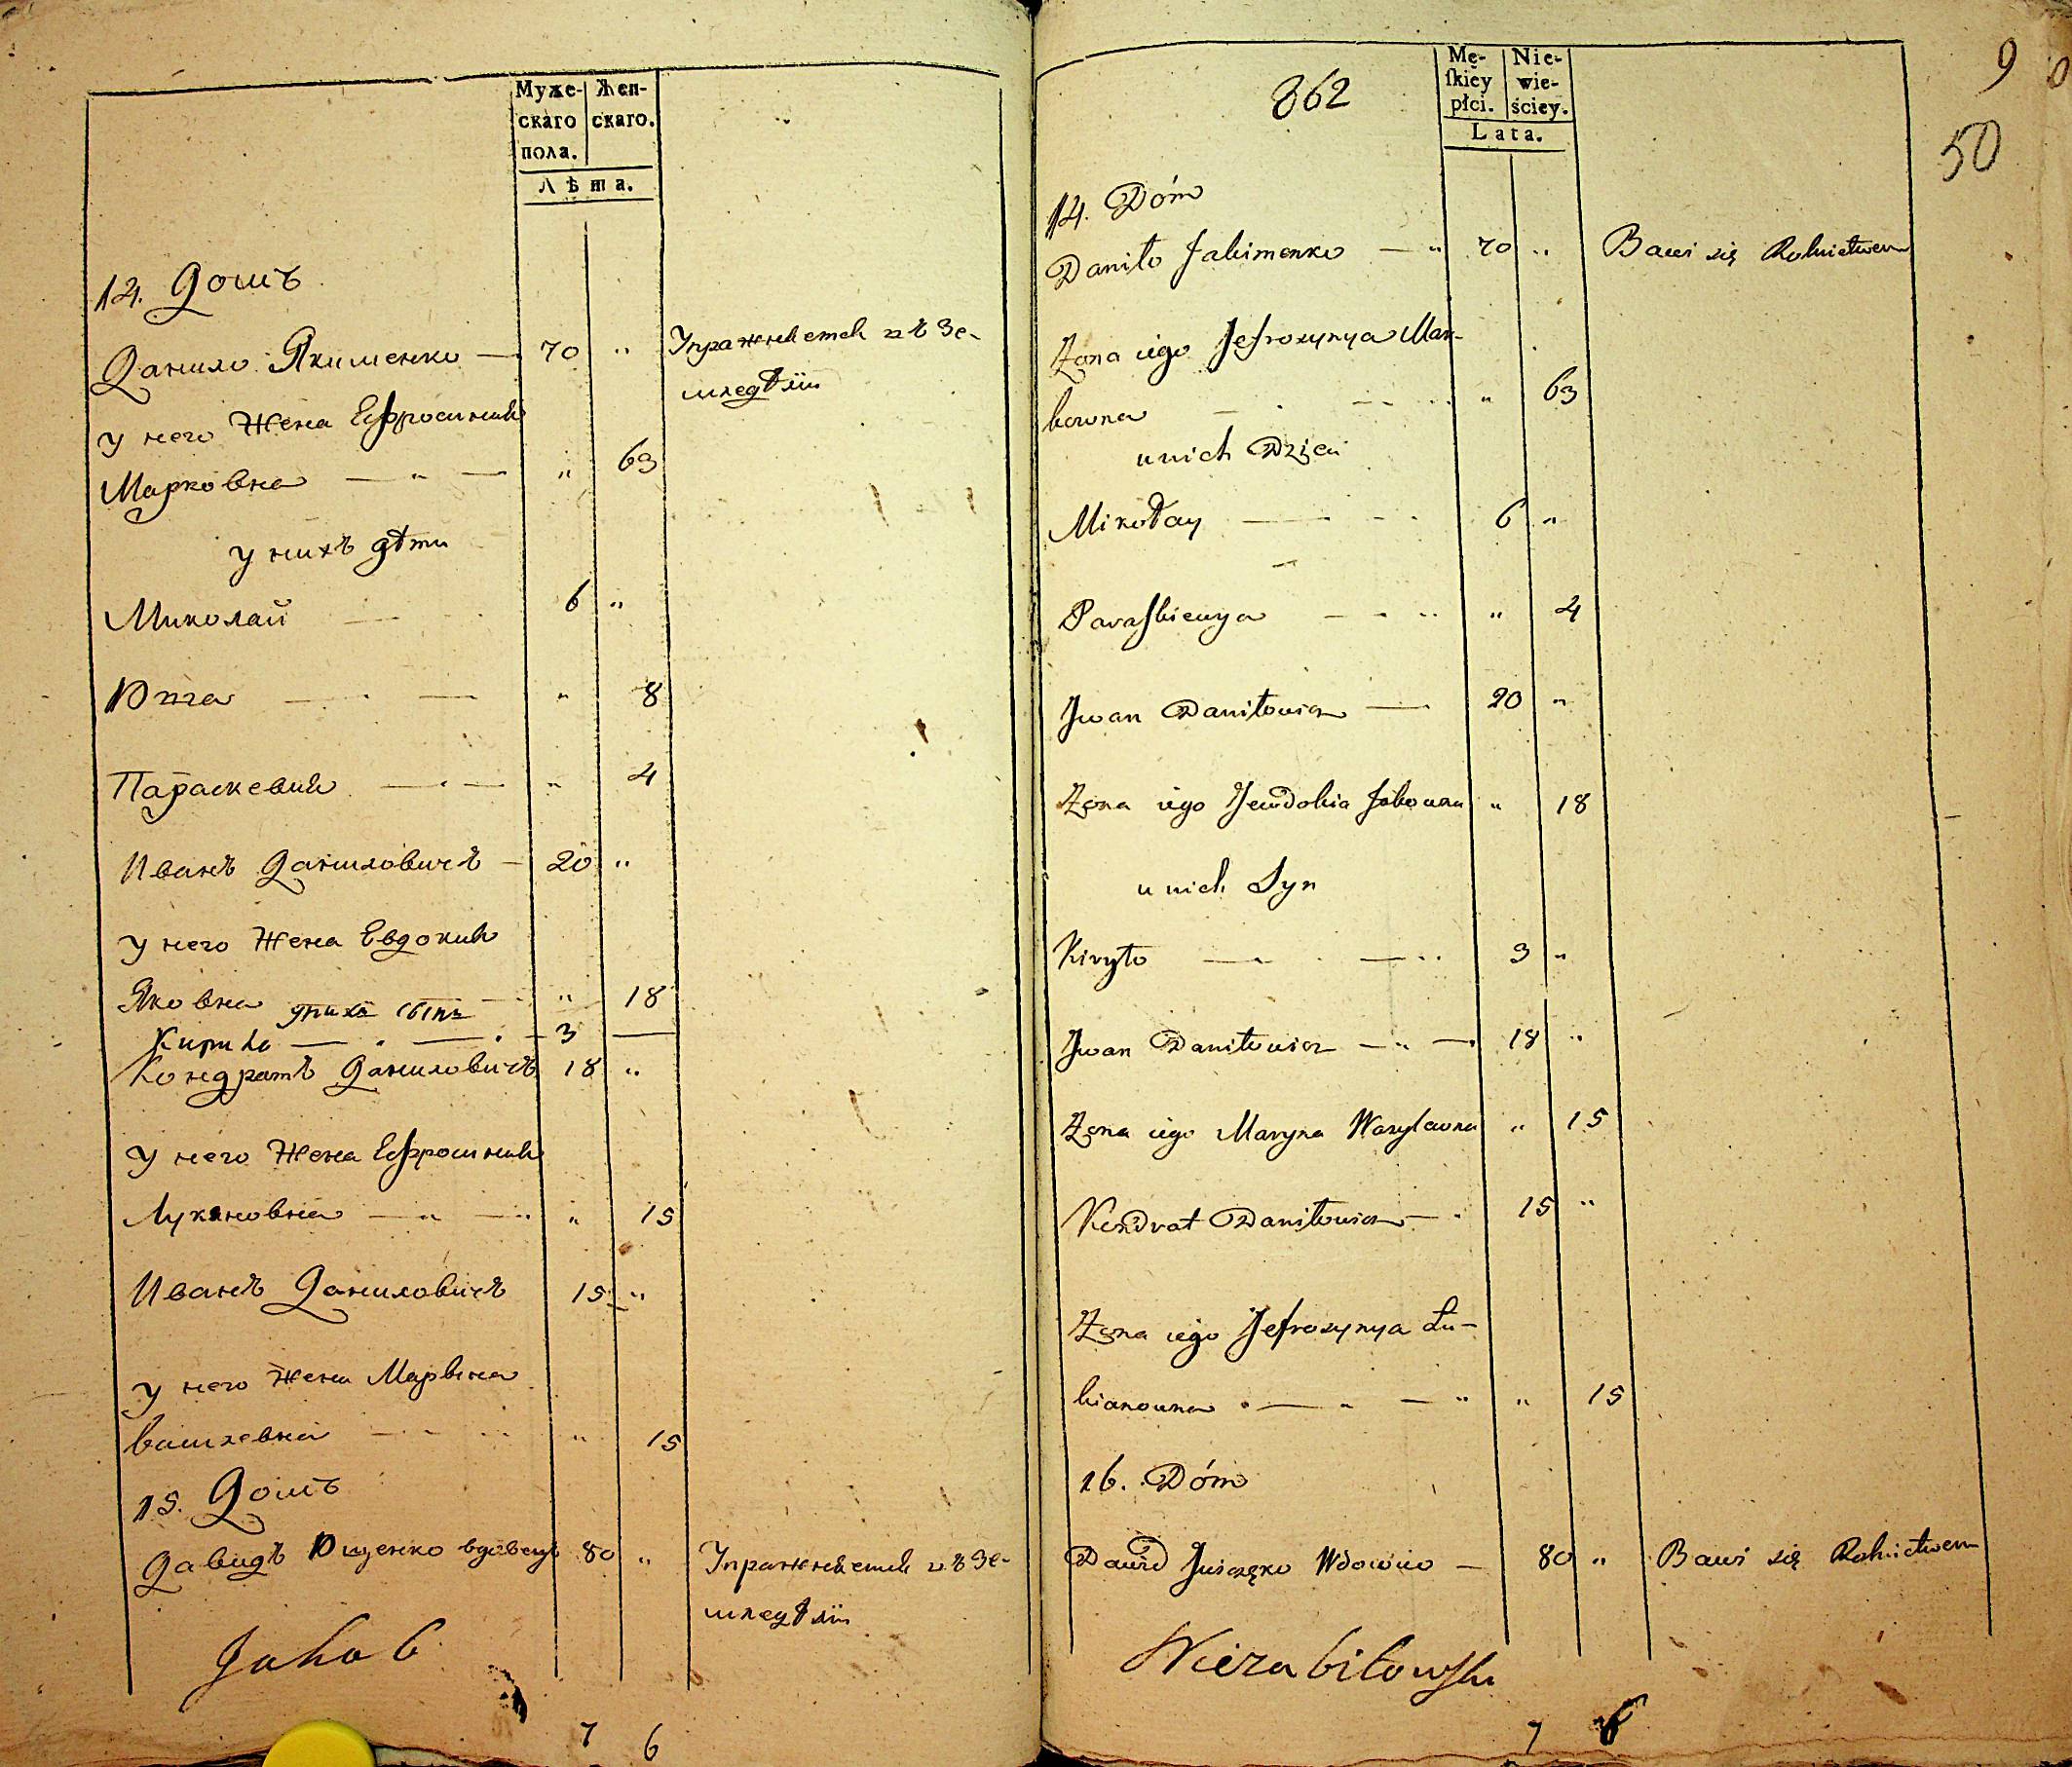 Муже- Жен-
скаго скаго.
пола.
Лѣта.
14. Домъ
Данило Якименко — 70 " Упражняется въ Зе-
мледѣлiи
у него Жена Ефросиния
Марковна — " — " 63
у нихъ дѣти
Миколай 6 "
Юлга — — " 8
Параскевия — " 4
Иванъ Даниловичъ — 20 "
у него Жена Евдокия
Яковна у нихъ сынъ " 18
Кирило — — 3 —
Кондратъ Даниловичъ 18 "
у него Жена Ефросиния
Лукяновна — " — " 15
Иванъ Даниловичъ 15 "
у него жена Марвіна
Васил​евна " 15
15. Домъ
Давидъ Ющенко вдовецъ 80 " Упражняется въ Зе-
мледѣлiи
Jakob
7 6
862
Mę- Nie-
ſkiey wie-
płci. ściey.
Lata.
9
50
14. Dóm
Daniło Jakimenko — " 70 " Bawi się Rolnictwem
Żona iego Jefrozynya Mar-
kowna " 63
u nich Dzieci
Mikołay — 6 "
Paraſkiewya — " 4
Jwan Daniłowicz — 20 "
Żona iego Jewdokia Jakowna " 18
u nich Syn
Kiryło — 3 "
Jwan Daniłowicz — " — 18 "
Żona iego Maryna Wasylewna " 15
Kondrat Daniłowicz — 15 "
Żona iego Jefrozynya Łu-
kianowna — " — " " 15
16. Dóm
Dawid Juszczęko Wdowiec — 80 " Bawi się Rolnictwem
Niezabitowſki
7 6